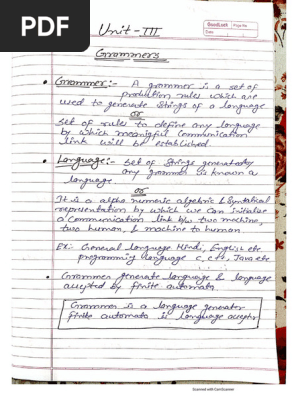 PDF
GoodLuck Page No.
Date
Unit-III
Grammers
• Grammer:- A grammer is a set of
production rules which are
used to generate strings of a language
OR
Set of rules to define any language
by which meanigful communication
link will be established.
• Language:- Set of strings generated by
any grammer is known a
language.
OR
It is a alpha numeric algebric & Syntatical
representation by which we can initialize
a communication link b/w two machine,
two human, & machine to human.
Ex:- General language Hindi, English etc
programming language C, C++, Java etc
• Grammer generate language & language
accepted by finite automata
Grammer is a language generater
finite automata is language accepter
Scanned with CamScanner